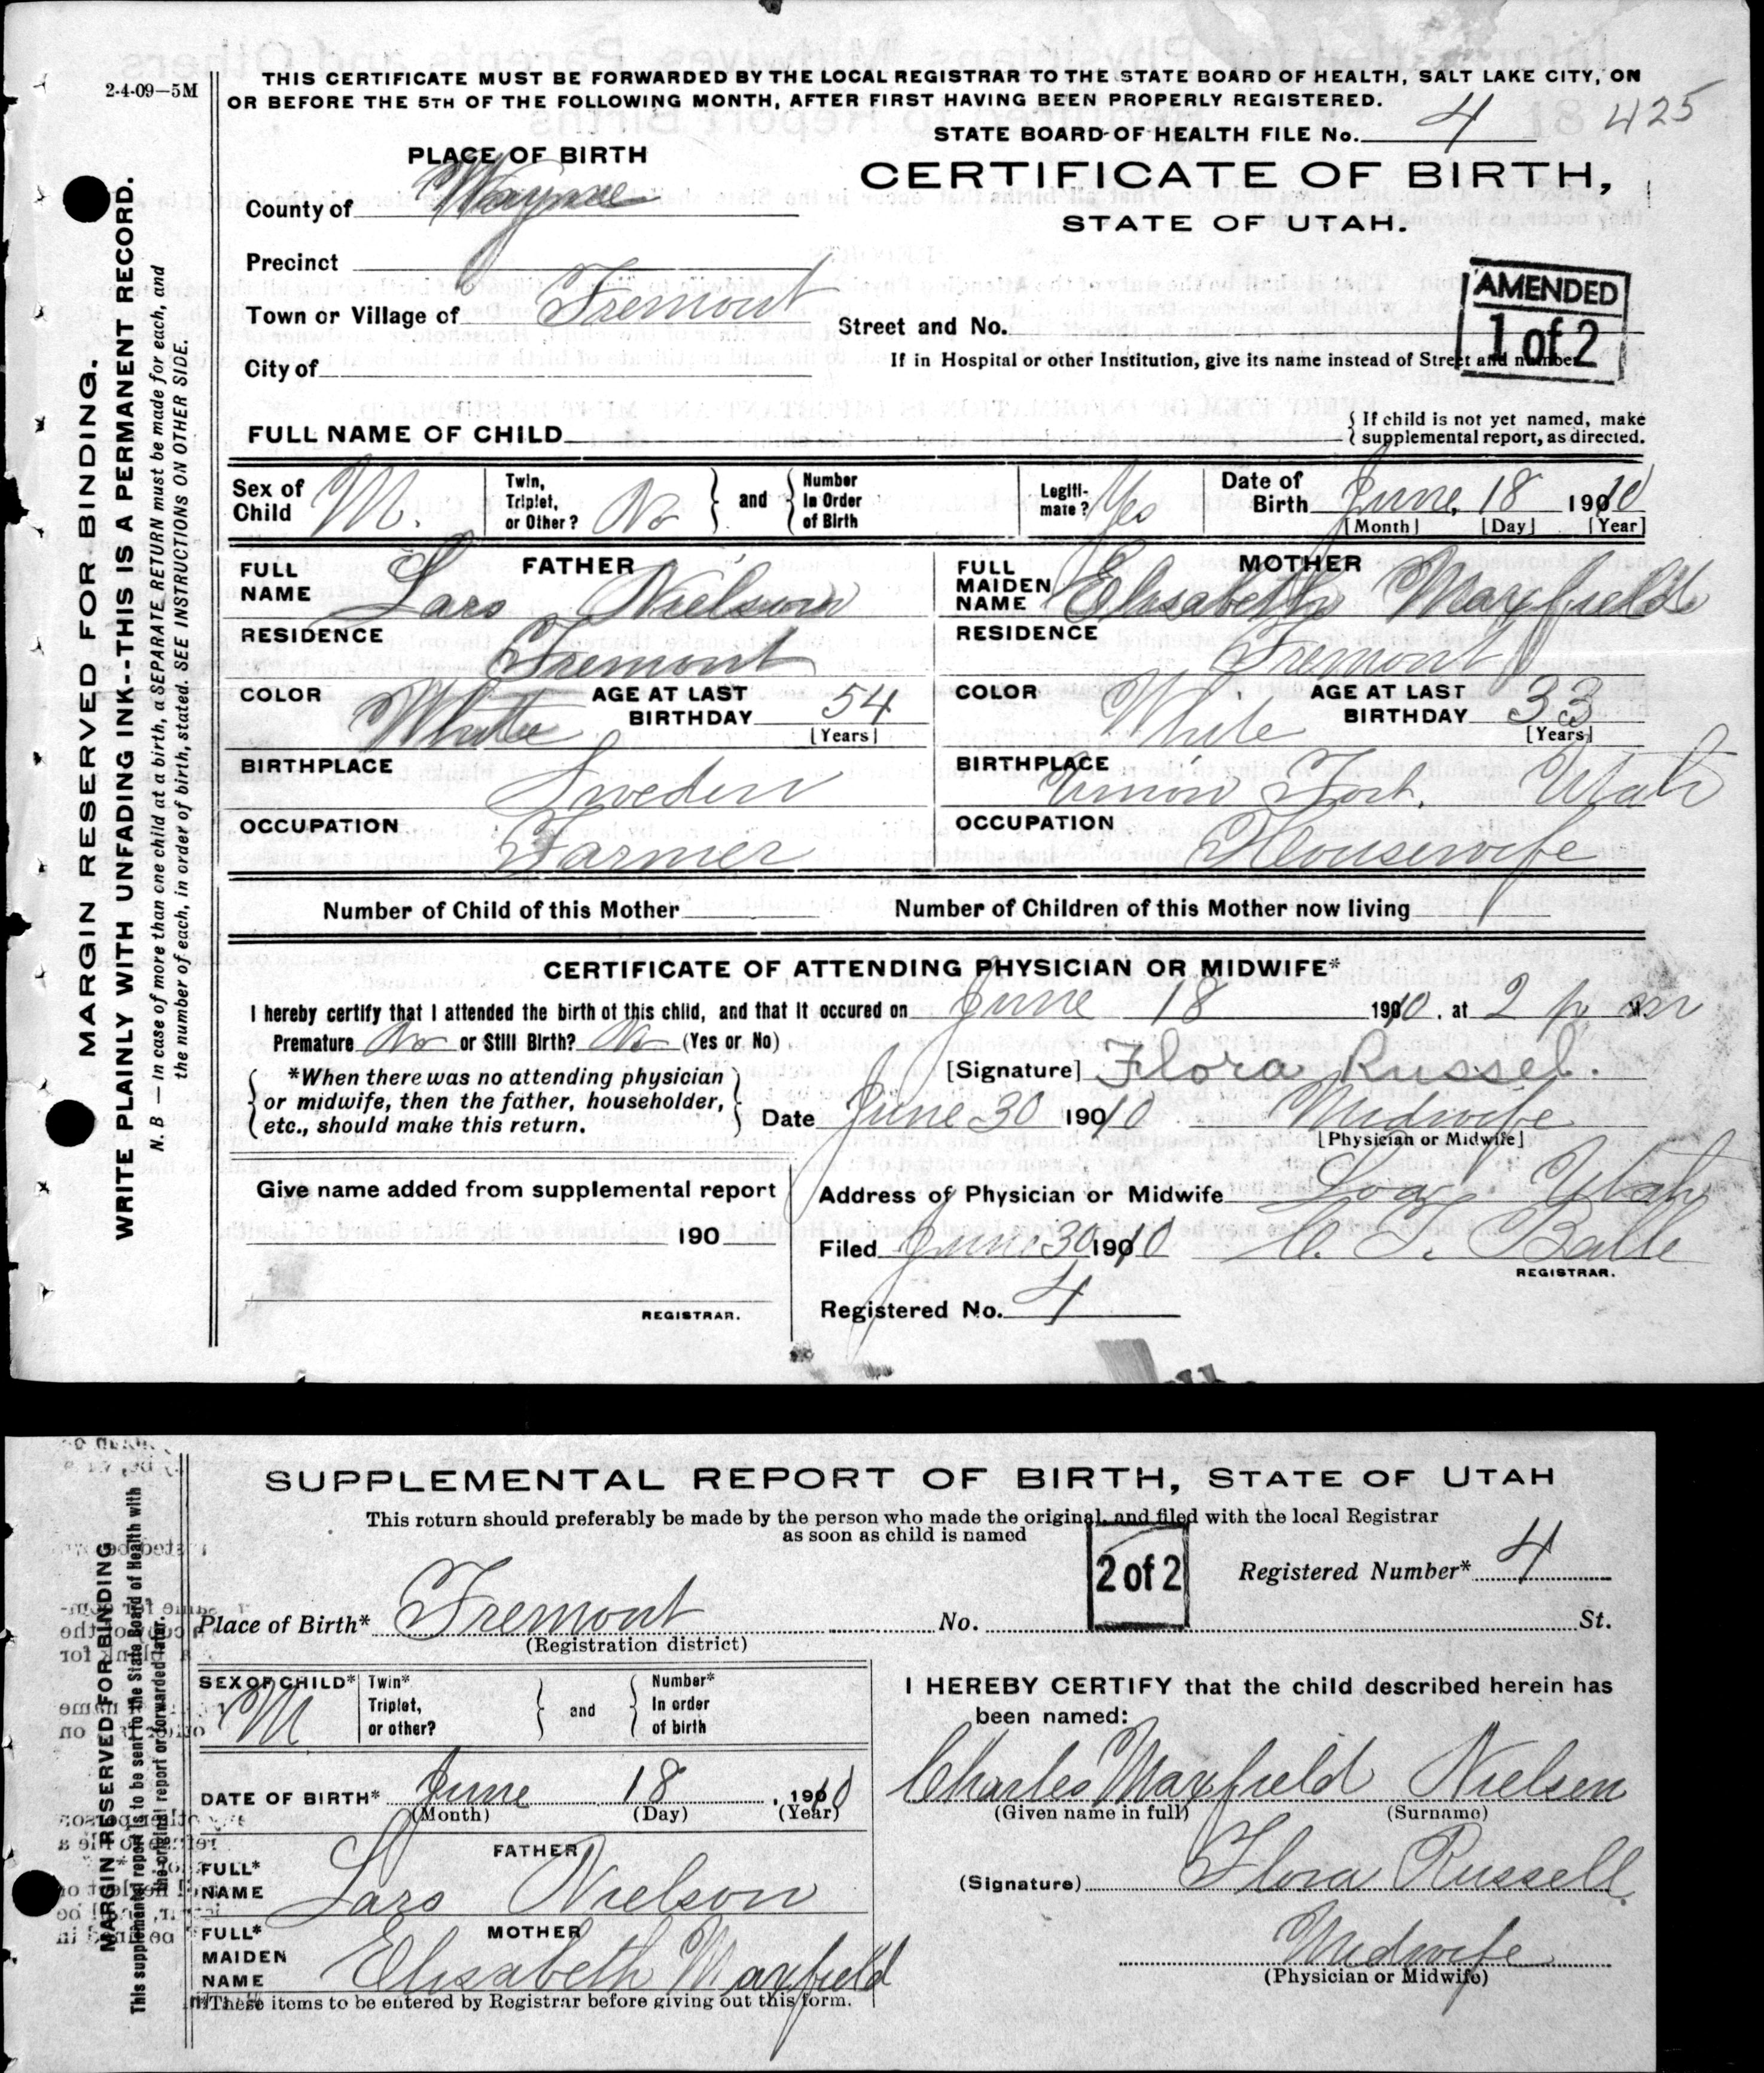 2-4-09—5M
THIS CERTIFICATE MUST BE FORWARDED BY THE LOCAL REGISTRAR TO THE STATE BOARD OF HEALTH, SALT LAKE CITY, ON
OR BEFORE THE 5TH OF THE FOLLOWING MONTH, AFTER FIRST HAVING BEEN PROPERLY REGISTERED.
STATE BOARD OF HEALTH FILE No. 4 425
PLACE OF BIRTH
CERTIFICATE OF BIRTH,
STATE OF UTAH.
County of Wayne
Precinct
Town or Village of Fremont
City of
Street and No.
If in Hospital or other Institution, give its name instead of Street and number
AMENDED
1 of 2
FULL NAME OF CHILD
If child is not yet named, make
supplemental report, as directed.
Sex of Child M.
Twin, Triplet, or Other? No
and
Number In Order of Birth
Legiti-mate? Yes
Date of Birth June, 18 1910
[Month] [Day] [Year]
FATHER
FULL NAME Lars Nielson
RESIDENCE Fremont
COLOR White AGE AT LAST BIRTHDAY 54
[Years]
BIRTHPLACE Sweden
OCCUPATION Farmer
MOTHER
FULL MAIDEN NAME Elisabeth Maxfield
RESIDENCE Fremont
COLOR White AGE AT LAST BIRTHDAY 33
[Years]
BIRTHPLACE Union Fort, Utah
OCCUPATION Housewife
Number of Child of this Mother
Number of Children of this Mother now living
CERTIFICATE OF ATTENDING PHYSICIAN OR MIDWIFE*
I hereby certify that I attended the birth of this child, and that it occured on June 18 1910, at 2 p m
Premature No or Still Birth? No (Yes or No)
*When there was no attending physician
or midwife, then the father, householder,
etc., should make this return.
[Signature] Flora Russel.
Date June 30 1910 Midwife
[Physician or Midwife]
Give name added from supplemental report
190
REGISTRAR.
Address of Physician or Midwife Loa, Utah
Filed June 30 1910
REGISTRAR.
Registered No. 4
MARGIN RESERVED FOR BINDING.
WRITE PLAINLY WITH UNFADING INK--THIS IS A PERMANENT RECORD.
N. B — In case of more than one child at a birth, a SEPARATE RETURN must be made for each, and
the number of each, in order of birth, stated. SEE INSTRUCTIONS ON OTHER SIDE.
SUPPLEMENTAL REPORT OF BIRTH, STATE OF UTAH
This return should preferably be made by the person who made the original, and filed with the local Registrar
as soon as child is named
2 of 2
Registered Number* 4
Place of Birth* Fremont No. St.
(Registration district)
SEX OF CHILD* M
Twin* Triplet, or other?
and
Number* In order of birth
DATE OF BIRTH* June 18, 1910
(Month) (Day) (Year)
FATHER
FULL* NAME Lars Nielson
MOTHER
FULL* MAIDEN NAME Elisabeth Maxfield
*These items to be entered by Registrar before giving out this form.
I HEREBY CERTIFY that the child described herein has
been named:
Charles Maxfield Nielsen
(Given name in full) (Surname)
(Signature) Flora Russell
Midwife
(Physician or Midwife)
MARGIN RESERVED FOR BINDING
This supplemental report is to be sent to the State Board of Health with
the original report or forwarded later.